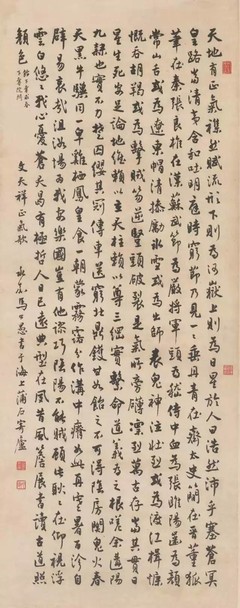 天地有正氣襍然賦流形下則為河嶽上則為日星於人曰浩然沛乎塞蒼冥
皇路當清夷含和吐明庭時窮節乃見一一垂丹青在齊太史簡在晉董狐
筆在秦張良椎在漢蘇武節為嚴將軍頭為嵇侍中血為張睢陽齒為顏
常山舌或為遼東帽清操勵冰雪或為出師表鬼神泣壯烈或為渡江楫慷
慨吞胡羯或為擊賊笏逆豎頭破裂是氣所旁礴凜烈萬古存當其貫日
月生死安足論地維賴以立天柱賴以尊三綱實繫命道義為之根嗟余遘陽
九隸也實不力楚囚纓其冠傳車送窮北鼎鑊甘如飴之不可得陰房闃鬼火春
天黑牛驥同一皁雞棲鳳皇食一朝蒙霧露分作溝中瘠如此再寒暑百沴自
辟易哀哉沮洳場為我安樂國豈有他繆巧陰陽不能賊顧此耿耿在仰視浮
雲白悠悠我心憂蒼天曷有極哲人日已遠典型在夙昔風簷展書讀古道照
顏色
文天祥正氣歌 永嘉馬公愚書于海上蒲石寄廬